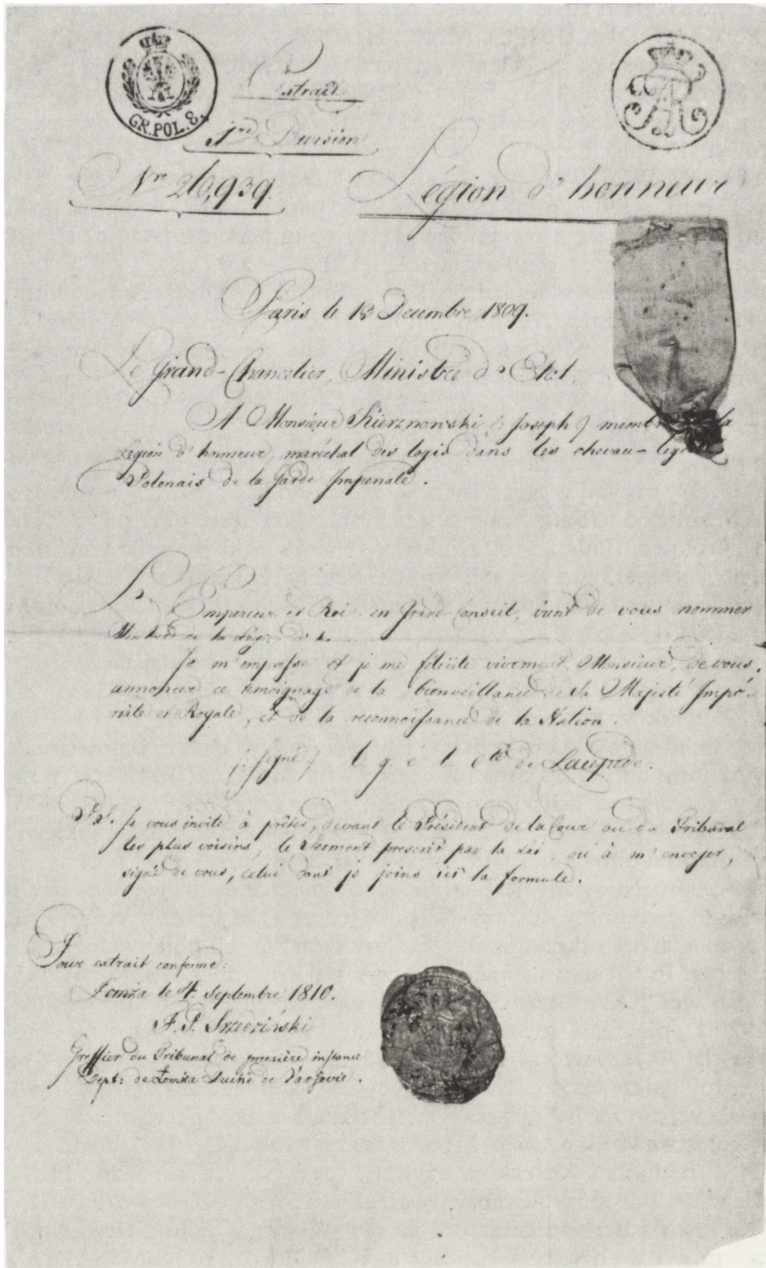 GR. POL. 8.
Extrait
1re Division
Nro 26,939
Légion d'honneur
Paris le 13 Decembre 1809.
Le Grand-Chancelier, Ministre d'Etat,
A Monsieur Skierznowski (: Joseph :) membre la
Legion d'honneur, maréchal des logis dans les chevau-legers
Polonais de la Garde Imperiale.
L'Empereur et Roi en Grand Conseil, vient de vous nommer
Membre de la Légion d. h.
Je m'empresse et je me félicite vivement, Monsieur, de vous
annoncer ce temoignage de la bienveillance de Sa Majesté Impé-
riale et Royale, et de la reconnoissance de la Nation.
(: signé :) le g. c. le cte de Lacepede.
P.S. Je vous invite à prêter, devant le Président de la Cour ou du Tribunal
les plus voisins, le Serment prescrit par la Loi, ou à m'envoyer,
signé de vous, celui dont je joins ici la formule.
Pour extrait conforme:
Lomza le 4 Septembre 1810.
Greffier du Tribunal de premiere instance
Dept: de Lomza Duché de Varsovie.